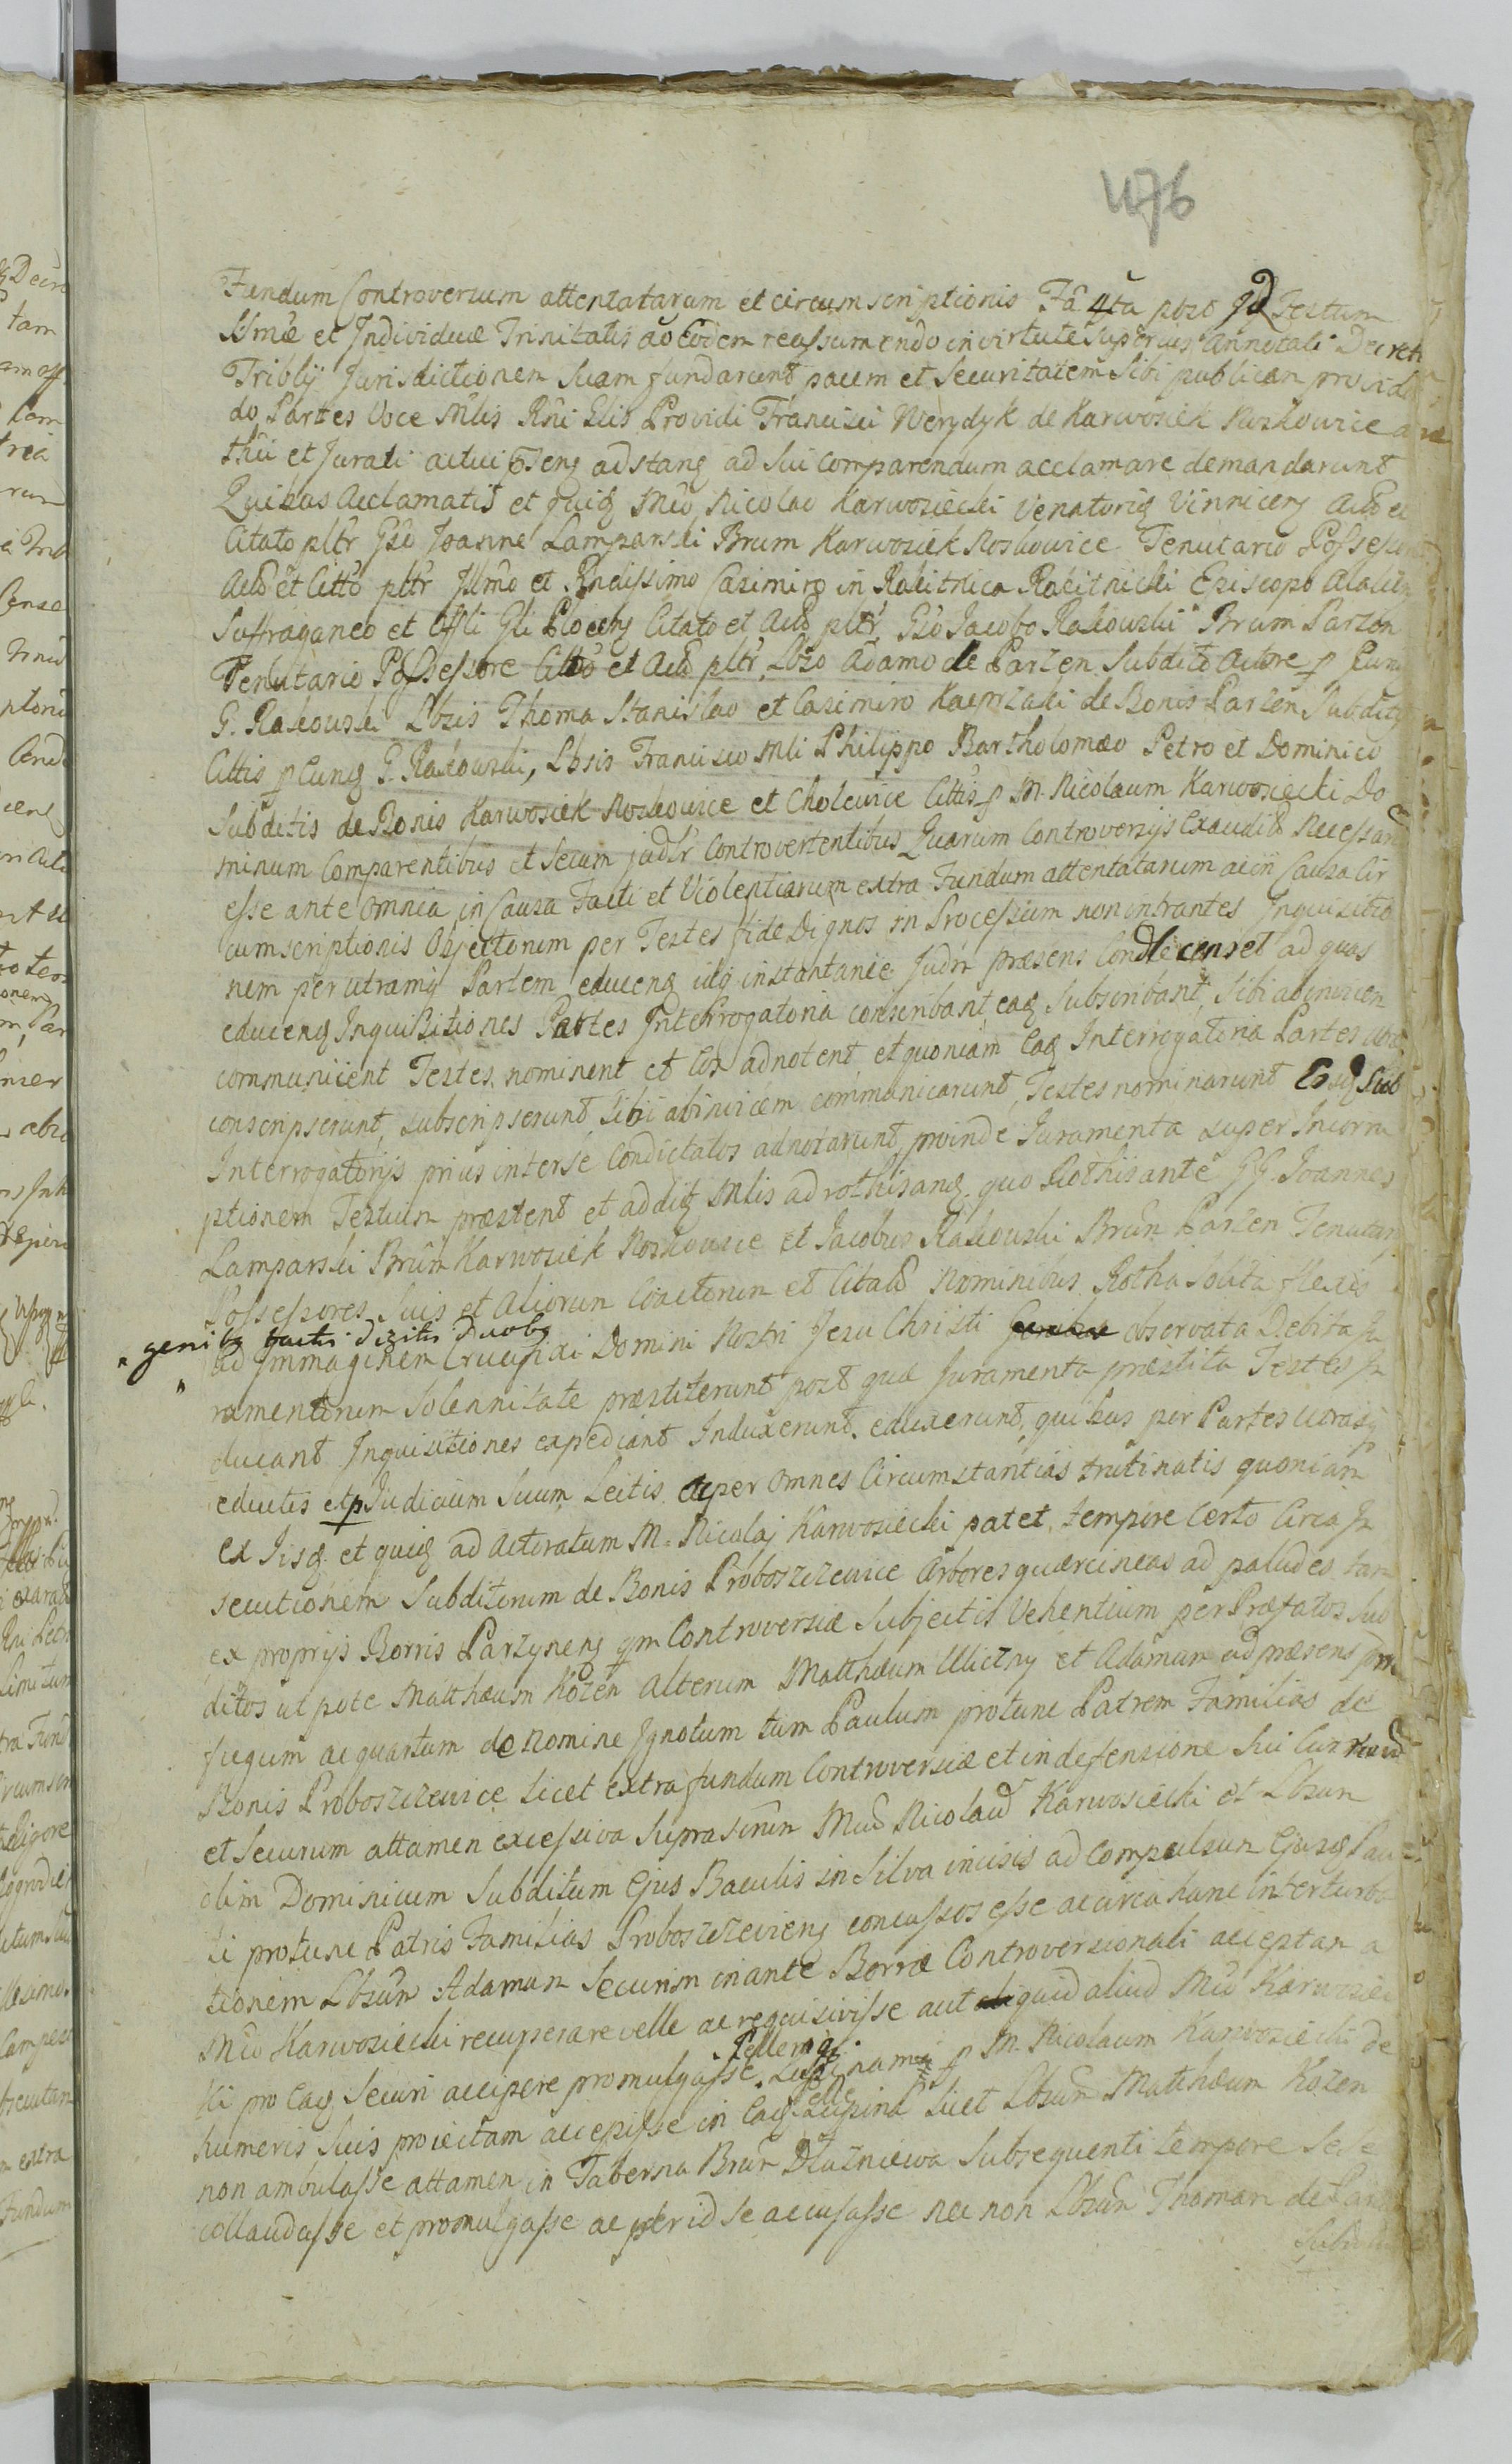 476
Fundum Controversum attentatarum et circumscriptionis Fâ 4ta pozo Jd Festum
SSmæ et Individuæ Trinitatis ao Eodem reassumendo in virtute Superius Annotati Decreti
Triblij Jurisdictionem Suam fundarunt pacem et Securitatem Sibi publicam providen
do Partes Voce Mlis Rni Glis Providi Francisci Werydyk de Karwosiek Noskowice
thii et Jurati actui adstang ad Sui comparendum acclamare demandarunt
Quibus Acclamatis et quiq Mco Nicolao Karwosiecki Venatoriq Vinniceng Acto et
Citato pltr Gso Joanne Lamparski Brum Karwosiek Noskowice Tenutario Possessore
Acto et Citto pltr Illmo et Rndissimo Casimiro in Rokitnica Rokitnicki Episcopo
Suffraganeo et Offli Gli Ploceng Citato et Acto pltr Gso Jacobo Rakowski Brum Parzen
Tenutario Possessore Citto et Acto pltr Lbzo Adamo de Parzen Subdito Actore p Eun
G. Rakowski Lbzis Thoma Stanislao et Casimiro Kacprzaki de Bonis Parzen Subditis
Cittis p Eunq G. Rakowski, Lbsis Francisco Mli Philippo Bartholomæo Petro et Dominico
Subditis de Bonis Karwosiek Noskowice et Cholewice Cittis p M. Nicolaum Karwosiecki Do
minum Comparentibus et Secum judlr Controvertentibus Quarum Controversijs Exauditis Necessari
esse ante omnia in Causa Facti et Violentiarum extra Fundum attentatarum ac in Causa Cir
cumscriptionis Objectorum per Testes fide Dignos in Processum non intrantes Inquisitio
nem per utramq Partem educeng idq instantanie Judm præsens Condicenset ad quas
educeng Inquisitiones Partes Interrogatoria conscribant eaq Subscribant, Sibi abinvicem
communicent Testes nominent et Eos adnotent et quoniam Eaq Interrogatoria Partes
conscripserunt, subscripserunt, sibi abinvicem communicarunt, Testes nominarunt Eosq Sub
Interrogatorijs prius inter se Condictatos adnotarunt proinde Juramenta super Incorru
ptionem Testium præstent et ad ditq Mlis ad rothisanq. quo Rothisante GG. Joannes
Lamparski Brum Karwosiek Noskowice et Jacobus Rakowski Brum Parzen Tenutarij
Possessores Suis et Aliorum Coactorum et Citato Nominibus Rotha Solita flexis
" genibq tactis digitis Duobq
ad Immaginem Crucifixi Domini Nostri Jesu Christi observata Debita Ju
ramentorum Solennitate præstiterunt post quæ Juramenta præstita Testes In
ducant Inquisitiones expediant Induxerunt, eduxerunt, quibus per Partes Utrasq
eductis et p Judicium Suum Lectis ac per omnes Circumstantias trutinatis quoniam
ex Iisq et quiq ad Actoratum M. Nicolaj Karwosiecki patet, tempore Certo Circa In
secutionem Subditorum de Bonis Proboszczewice Arbores quærcineas ad paludes tan
ex proprijs Borris Parzyneng qm Controversiæ Subjectis Vehentium per Præfatos Sub
ditos ut pote Matthæum Kozen alterum Matthæum Uliczny et Adamum ad præsens pro
fugum ac quartum de Nomine Ignotum tum Paulum protunc Patrem Familias de
Bonis Proboszczewice licet extra fundum Controversiæ et in defensione Sui Curruum
et Securum attamen excessiva Suprascrum Mco Nicolao Karwosiecki et Lbsum
olim Dominicum Subditum Ejus Baculis in Silva incisis ad compulsum Ejusq Pau
li protunc Patris Familias Proboszczevieng concussos esse ac circa hanc interturba
tionem Lbsum Adamum Securim in ante Borræ Controversionali acceptam a
Mco Karwosiecki recuperare velle ac requisivisse aut quid aliud Mco Karwosiec
ki pro Eaq Securi accipere promulgasse, Pellemq. p M. Nicolaum Karwosiecki de
humeris Suis projectam accepisse in Eaq pelle Lupina licet Lbsum Matthæum Kozen
non ambulasse attamen in Taberna Brum Dłużniewa Subsequenti tempore Sese
collaudasse et promulgasse ac per id se accusasse nec non Lbsum Thomam de Parzen